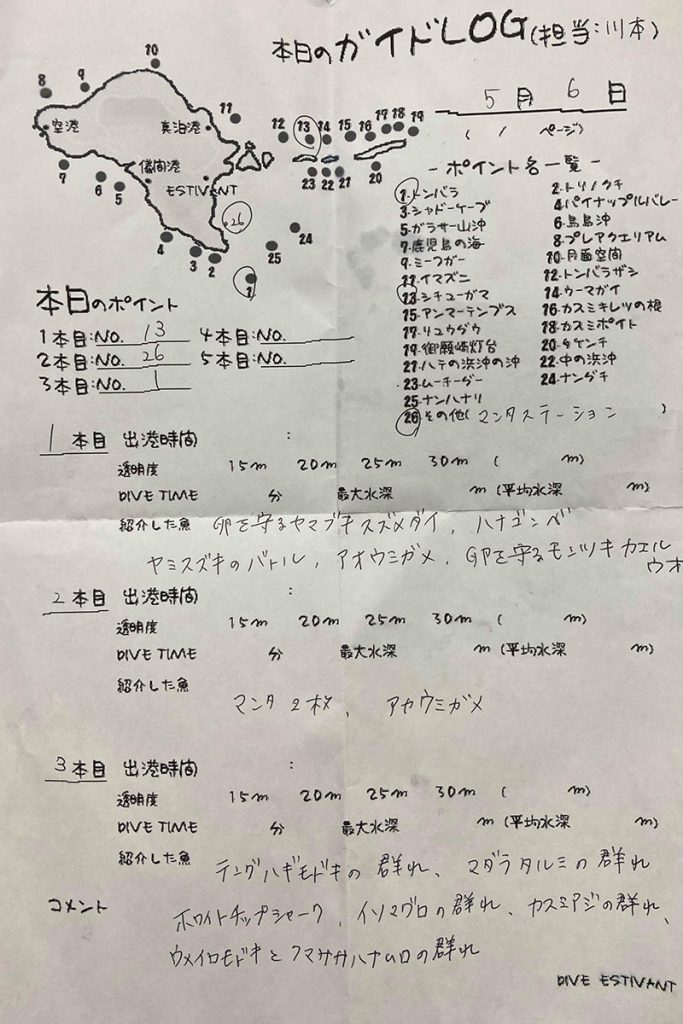 本日のガイドLOG(担当:川本)
5月 6日
( / ページ)
10
8
9
空港
真泊港
11
儀間港
ESTIVANT
7
6
5
26
24
25
4
3
2
1
12
13
14
15
16
17
18
19
23
22
21
20
-ポイント名一覧-
1.トンバラ 2.トリノクチ
3.シャドーケーブ 4.パイナップルバレー
5.ガラサー山沖 6.鳥島沖
7.鹿児島の海 8.プレアクエリアム
9.ミーフガー 10.月面空間
11.イマズニ 12.トンバラザシ
13.シチューガマ 14.ウーマガイ
15.アンマーテンプス 16.カスミキレツの根
17.リュウダウ 18.カスミポイト
19.御願崎灯台 20.タケンチ
21.ハテの浜沖の沖 22.中の浜沖
23.ムーチーダー 24.ナンダチ
25.ナンハナリ
26.その他(マンタステーション )
本日のポイント
1本目:NO. 13 4本目:NO.
2本目:NO. 26 5本目:NO.
3本目:NO. 1
1本目 出港時間 :
透明度 15m 20m 25m 30m ( m)
DIVE TIME 分 最大水深 m (平均水深 m)
紹介した魚 卵を守るヤマブキスズメダイ、ハナゴンベ
ヤミスズキのバトル、アオウミガメ、卵を守るモンツキカエル
ウオ
2本目 出港時間 :
透明度 15m 20m 25m 30m ( m)
DIVE TIME 分 最大水深 m (平均水深 m)
紹介した魚
マンタ2枚、アカウミガメ
3本目 出港時間 :
透明度 15m 20m 25m 30m ( m)
DIVE TIME 分 最大水深 m (平均水深 m)
紹介した魚 テングハギモドキの群れ、マダラタルミの群れ
コメント ホワイトチップシャーク、イソマグロの群れ、カスミアジの群れ、
ウメイロモドキとクマササハナムロの群れ
DIVE ESTIVANT